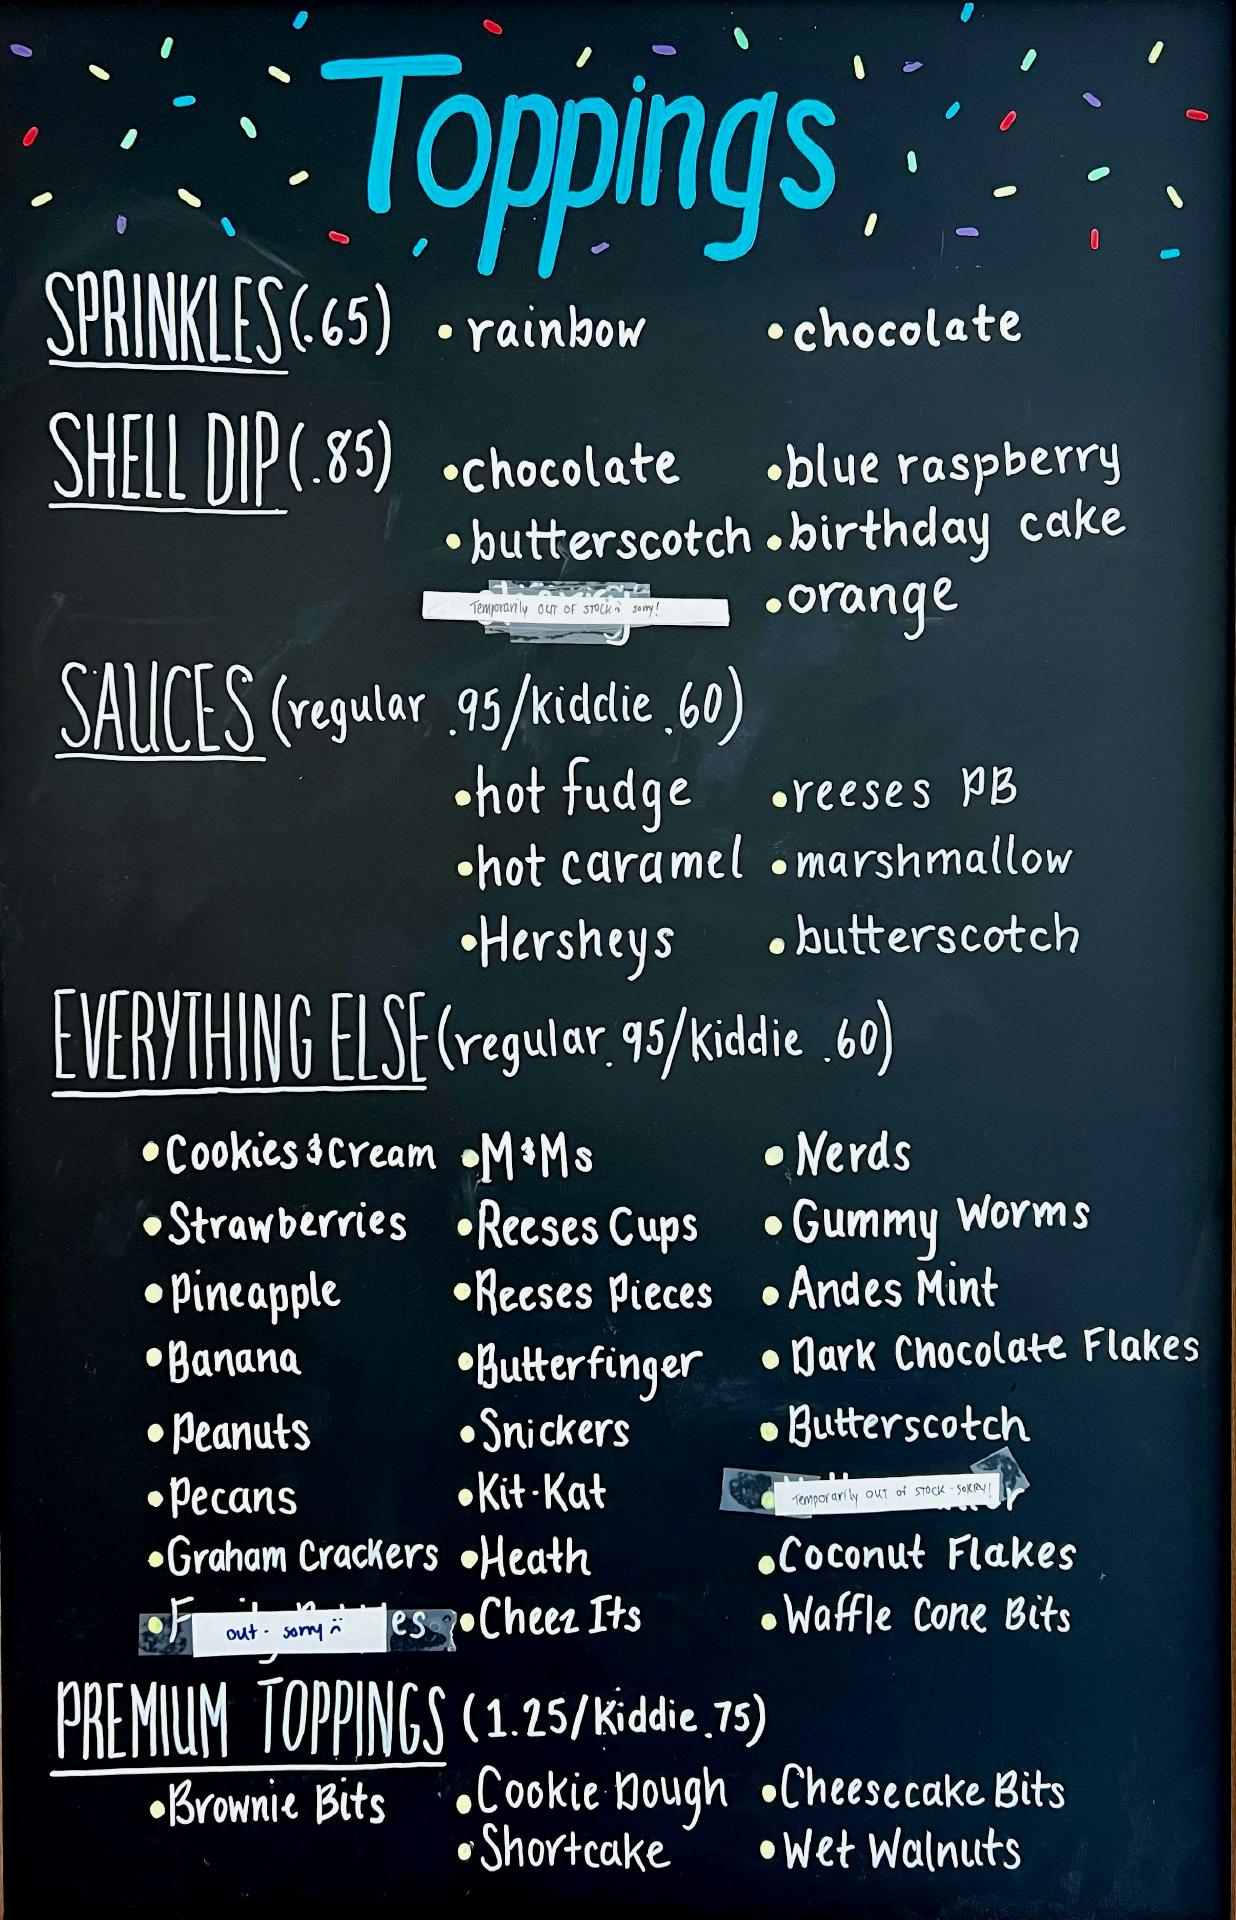 Toppings
SPRINKLES (.65) • rainbow • chocolate
SHELL DIP (.85) • chocolate • blue raspberry
• butterscotch • birthday cake
Temporarily OUT OF STOCK :( sorry! • orange
SAUCES (regular .95/kiddie .60)
• hot fudge • reeses PB
• hot caramel • marshmallow
• Hersheys • butterscotch
EVERYTHING ELSE (regular .95/kiddie .60)
• Cookies & Cream • M&Ms • Nerds
• Strawberries • Reeses Cups • Gummy Worms
• Pineapple • Reeses Pieces • Andes Mint
• Banana • Butterfinger • Dark Chocolate Flakes
• Peanuts • Snickers • Butterscotch
• Pecans • Kit-Kat • Temporarily OUT OF STOCK - SORRY!
• Graham Crackers • Heath • Coconut Flakes
• out - sorry :( • Cheez Its • Waffle Cone Bits
PREMIUM TOPPINGS (1.25/Kiddie .75)
• Brownie Bits • Cookie Dough • Cheesecake Bits
• Shortcake • Wet Walnuts